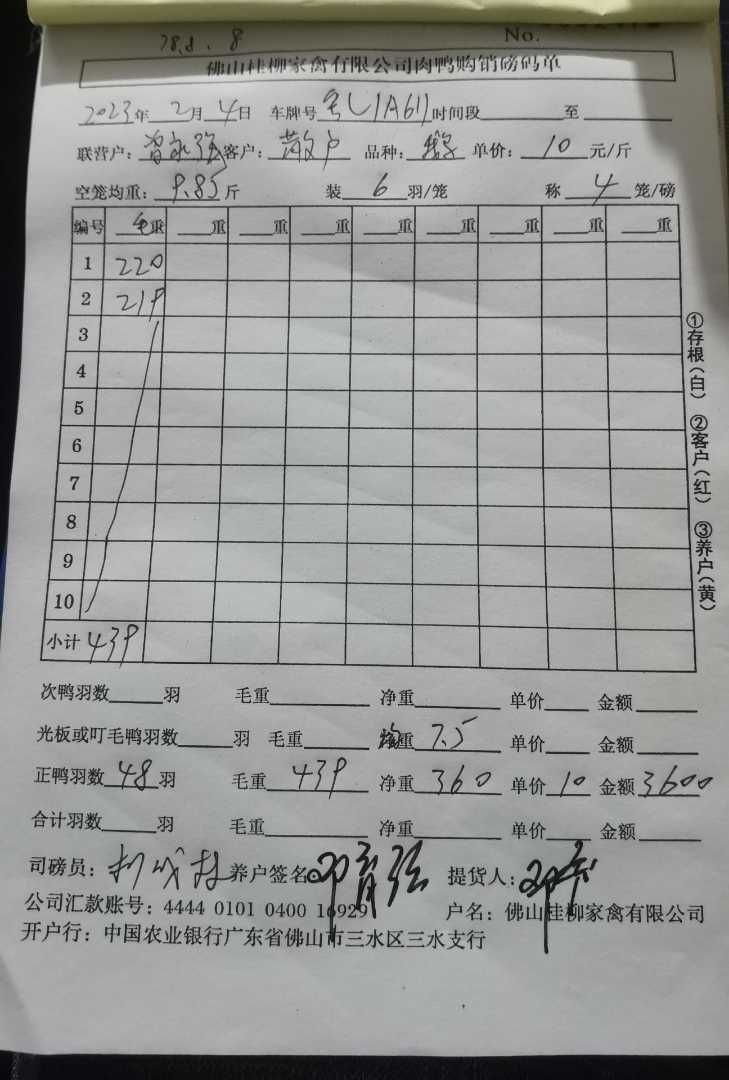 78.8.8
No.
佛山桂柳家禽有限公司肉鸭购销磅码单
2023年2月4日 车牌号 时间段 至
联营户: 客户:散户 品种: 单价:10元/斤
空笼均重:9.85斤 装6羽/笼 称4笼/磅
编号 毛重 重 重 重 重 重 重 重 重
1 220
2 219
3
4
5
6
7
8
9
10
小计 439
①存根(白) ②客户(红) ③养户(黄)
次鸭羽数 羽 毛重 净重 单价 金额
光板或叮毛鸭羽数 羽 毛重 均重7.5 单价 金额
正鸭羽数48羽 毛重439 净重360 单价10 金额3600
合计羽数 羽 毛重 净重 单价 金额
司磅员: 养户签名 提货人:
公司汇款账号:4444 0101 0400 16929 户名:佛山桂柳家禽有限公司
开户行:中国农业银行广东省佛山市三水区三水支行